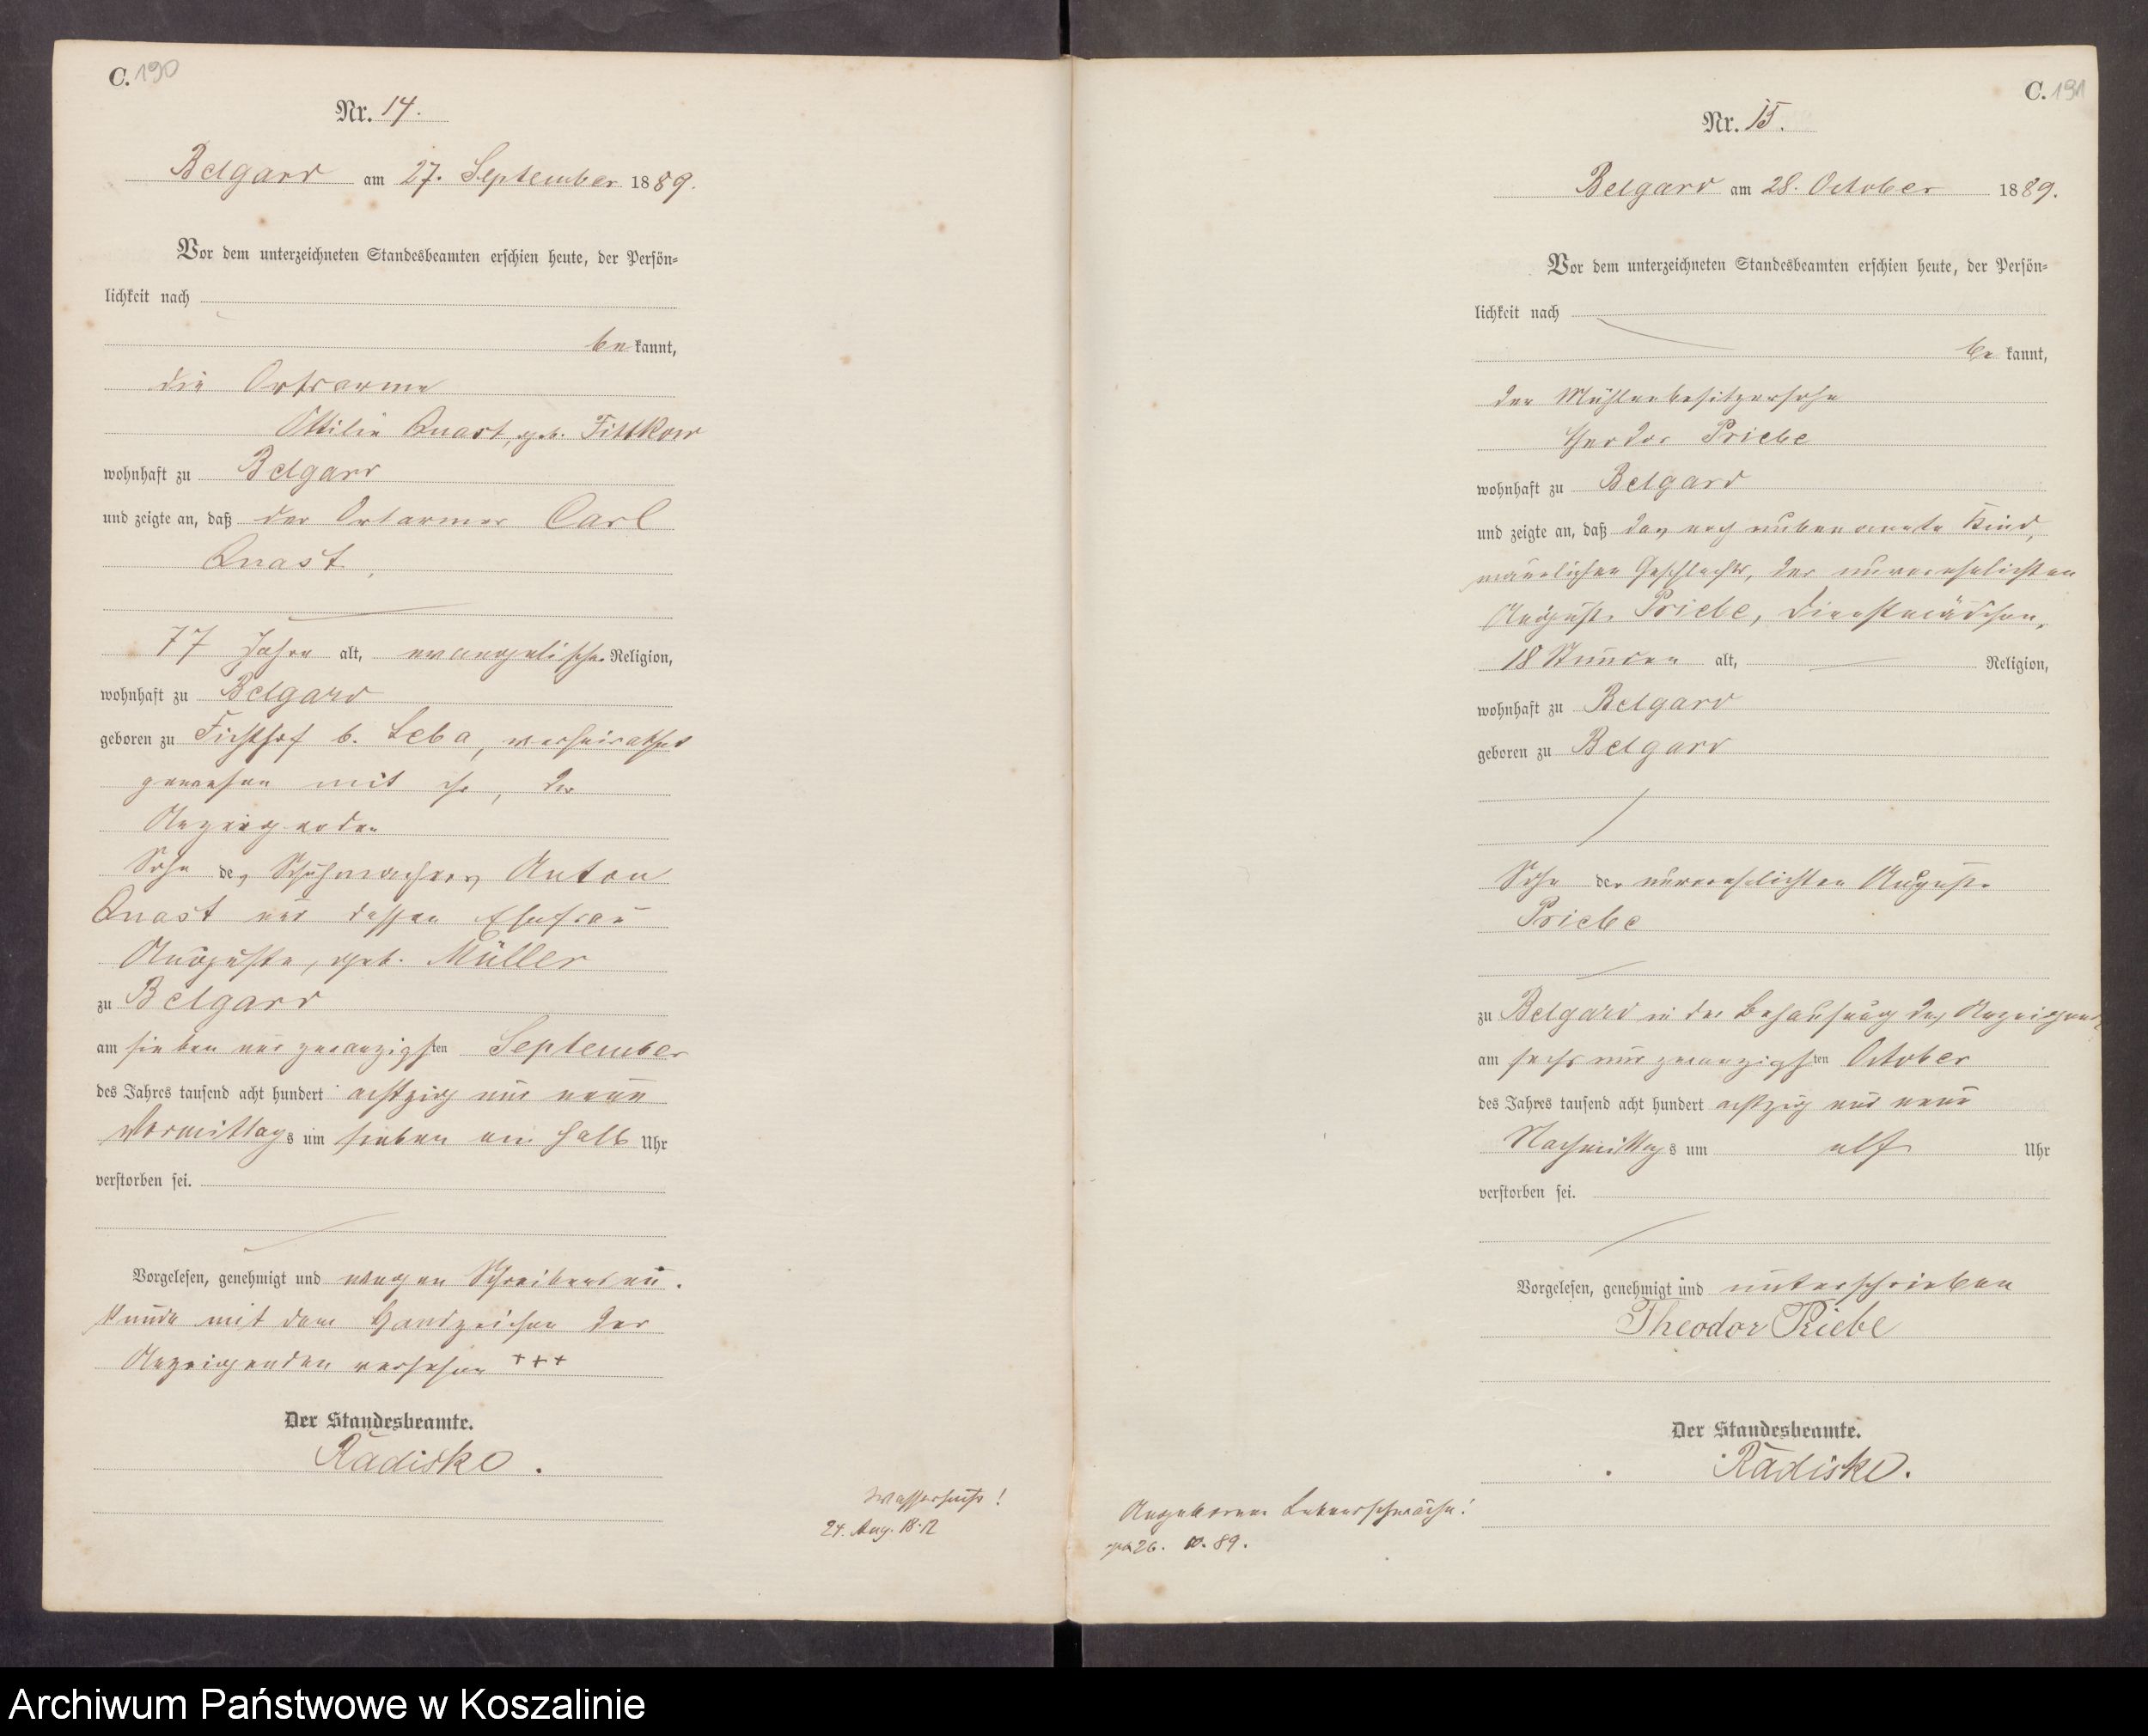 C. 190
Nr. 14.
Belgard am 27. September 1889.
Vor dem unterzeichneten Standesbeamten erschien heute, der Persön-
lichkeit nach
be kannt,
die Ortsarme
Ottilie Quast, geb. Fittkow
wohnhaft zu Belgard
und zeigte an, daß der Ortarmer Carl
Quast,
77 Jahre alt, evangelischer Religion,
wohnhaft zu Belgard
geboren zu Fichthof b. Leba, verheirathet
gewesen mit ihr, der
Anzeigenden
Sohn des Schuhmachers Anton
Quast und dessen Ehefrau
Auguste, geb. Müller
zu Belgard
am sieben und zwanzigsten September
des Jahres tausend acht hundert achtzig und neun
Vormittags um sieben ein halb Uhr
verstorben sei.
Vorgelesen, genehmigt und wegen Schreibensun-
kunde mit dem Handzeichen der
Anzeigenden versehen +++
Der Standesbeamte.
Radiske.
Wassersucht!
24. Aug. 18.12
C. 191
Nr. 15.
Belgard am 28. October 1889.
Vor dem unterzeichneten Standesbeamten erschien heute, der Persön-
lichkeit nach
be kannt,
der Mühlenbesitzersohn
Theodor Priebe
wohnhaft zu Belgard
und zeigte an, daß das noch unbenannte Kind,
männlichen Geschlechts, der unverehelichten
Auguste Priebe, Dienstmädchen,
18 Stunden alt, Religion,
wohnhaft zu Belgard
geboren zu Belgard
Sohn der unverehelichten Auguste
Priebe
zu Belgard in der Behausung des Anzeigenden
am sechs und zwanzigsten October
des Jahres tausend acht hundert achtzig und neun
Nachmittags um elf Uhr
verstorben sei.
Vorgelesen, genehmigt und unterschrieben
Theodor Priebe
Der Standesbeamte.
Radiske.
Angeborene Lebensschwäche!
geb. 26. 10. 89.
Archiwum Państwowe w Koszalinie